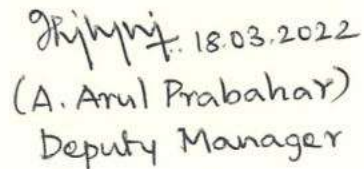 18.03.2022
(A. Arul Prabahar)
Deputy Manager